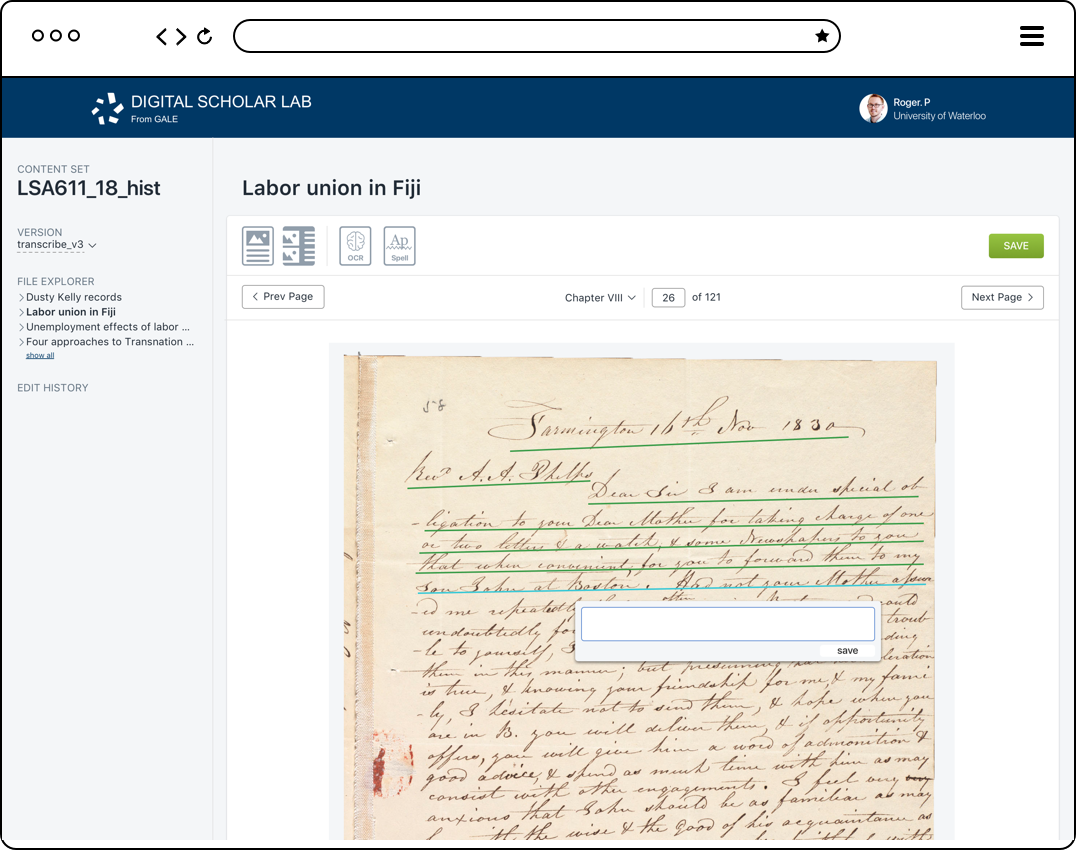 DIGITAL SCHOLAR LAB
From GALE
Roger. P
University of Waterloo
CONTENT SET
LSA611_18_hist
VERSION
transcribe_v3
FILE EXPLORER
Dusty Kelly records
Labor union in Fiji
Unemployment effects of labor ...
Four approaches to Transnation ...
show all
EDIT HISTORY
Labor union in Fiji
OCR
Ap
Spell
SAVE
Prev Page
Chapter VIII
26
of 121
Next Page
58
Farmington 16th Nov 1830
Revd A. A. Phelps
Dear Sir I am under special ob
-ligation to your Dear Mother for taking charge of one
or two letters & a watch, & some Newspapers to you
that when convenient, for you to forward them to my
Son John at Boston. Had not your Mother assur
-ed me repeatedly
often
would
undoubtedly for
troub
-le to yourself, I
ding
them in this manner; but presuming
is true, & knowing your friendship for me, & my fami
-ly, I hesitate not to send them, & hope when you
are in B. you will deliver them, & if opportunity
offers, you will give him a word of admonition &
good advice, & spend as much time with him as may
consist with other engagements. I feel very
anxious that John should be as familiar as may
with the wise & the good of his acquaintance as
save